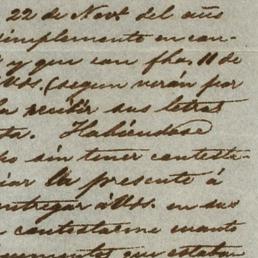 22 de Novb. del año
simplemente en cau
y que con fha. 11 de
Vds. (segun verán por
la recibir sus letras
ta. Habiéndose
po sin tener contesta
iar la presente á
entregar á Vds. en sus
contestarme cuanto
cumentos que estaban